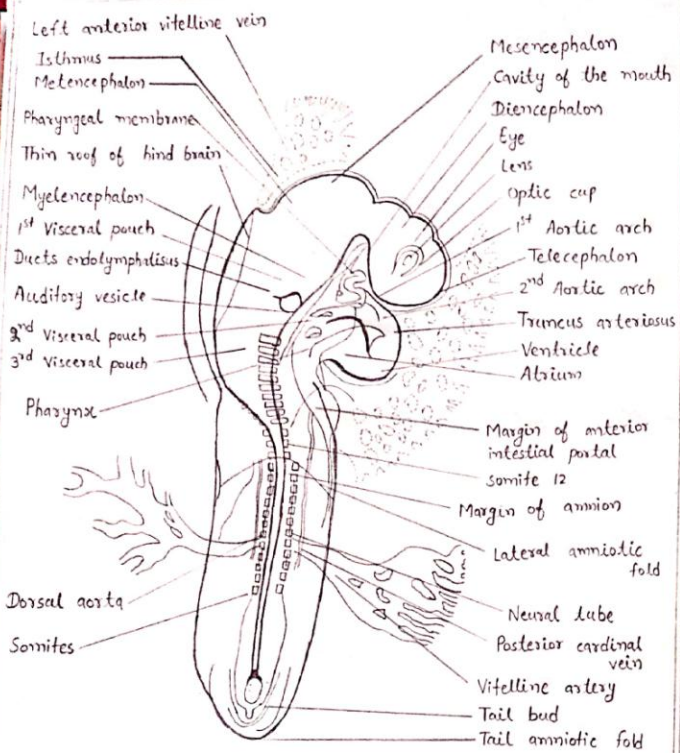 Left anterior vitelline vein
Isthmus
Metencephalon
Pharyngeal membrane
Thin roof of hind brain
Myelencephalon
1st Visceral pouch
Ducts endolymphalisus
Auditory vesicle
2nd Visceral pouch
3rd Visceral pouch
Pharynx
Dorsal aorta
Somites
Mesencephalon
Cavity of the mouth
Diencephalon
Eye
Lens
Optic cup
1st Aortic arch
Telecephalon
2nd Aortic arch
Truncus arteriosus
Ventricle
Atrium
Margin of anterior
intestial portal
somite 12
Margin of amnion
Lateral amniotic
fold
Neural tube
Posterior cardinal
vein
Vitelline artery
Tail bud
Tail amniotic fold